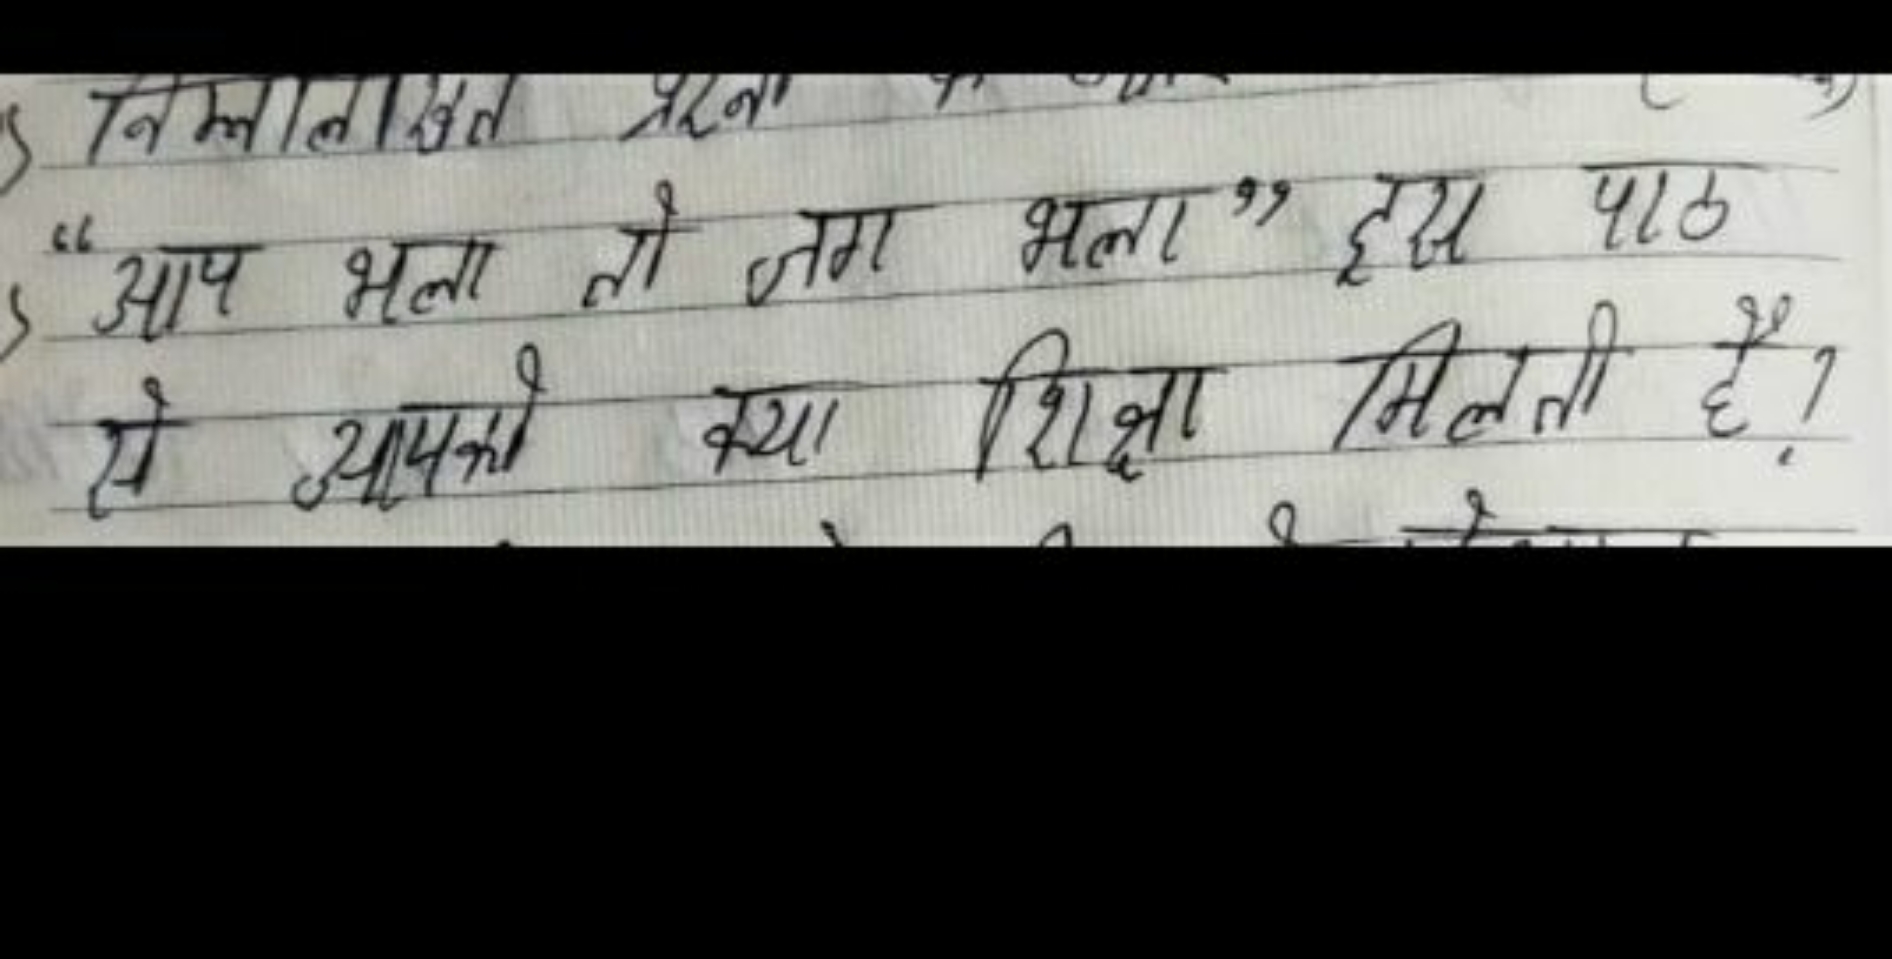 निम्नलिखित प्रश्नों के
"आप भला तो जग भला" इस पाठ
से आपको क्या शिक्षा मिलती हैं?